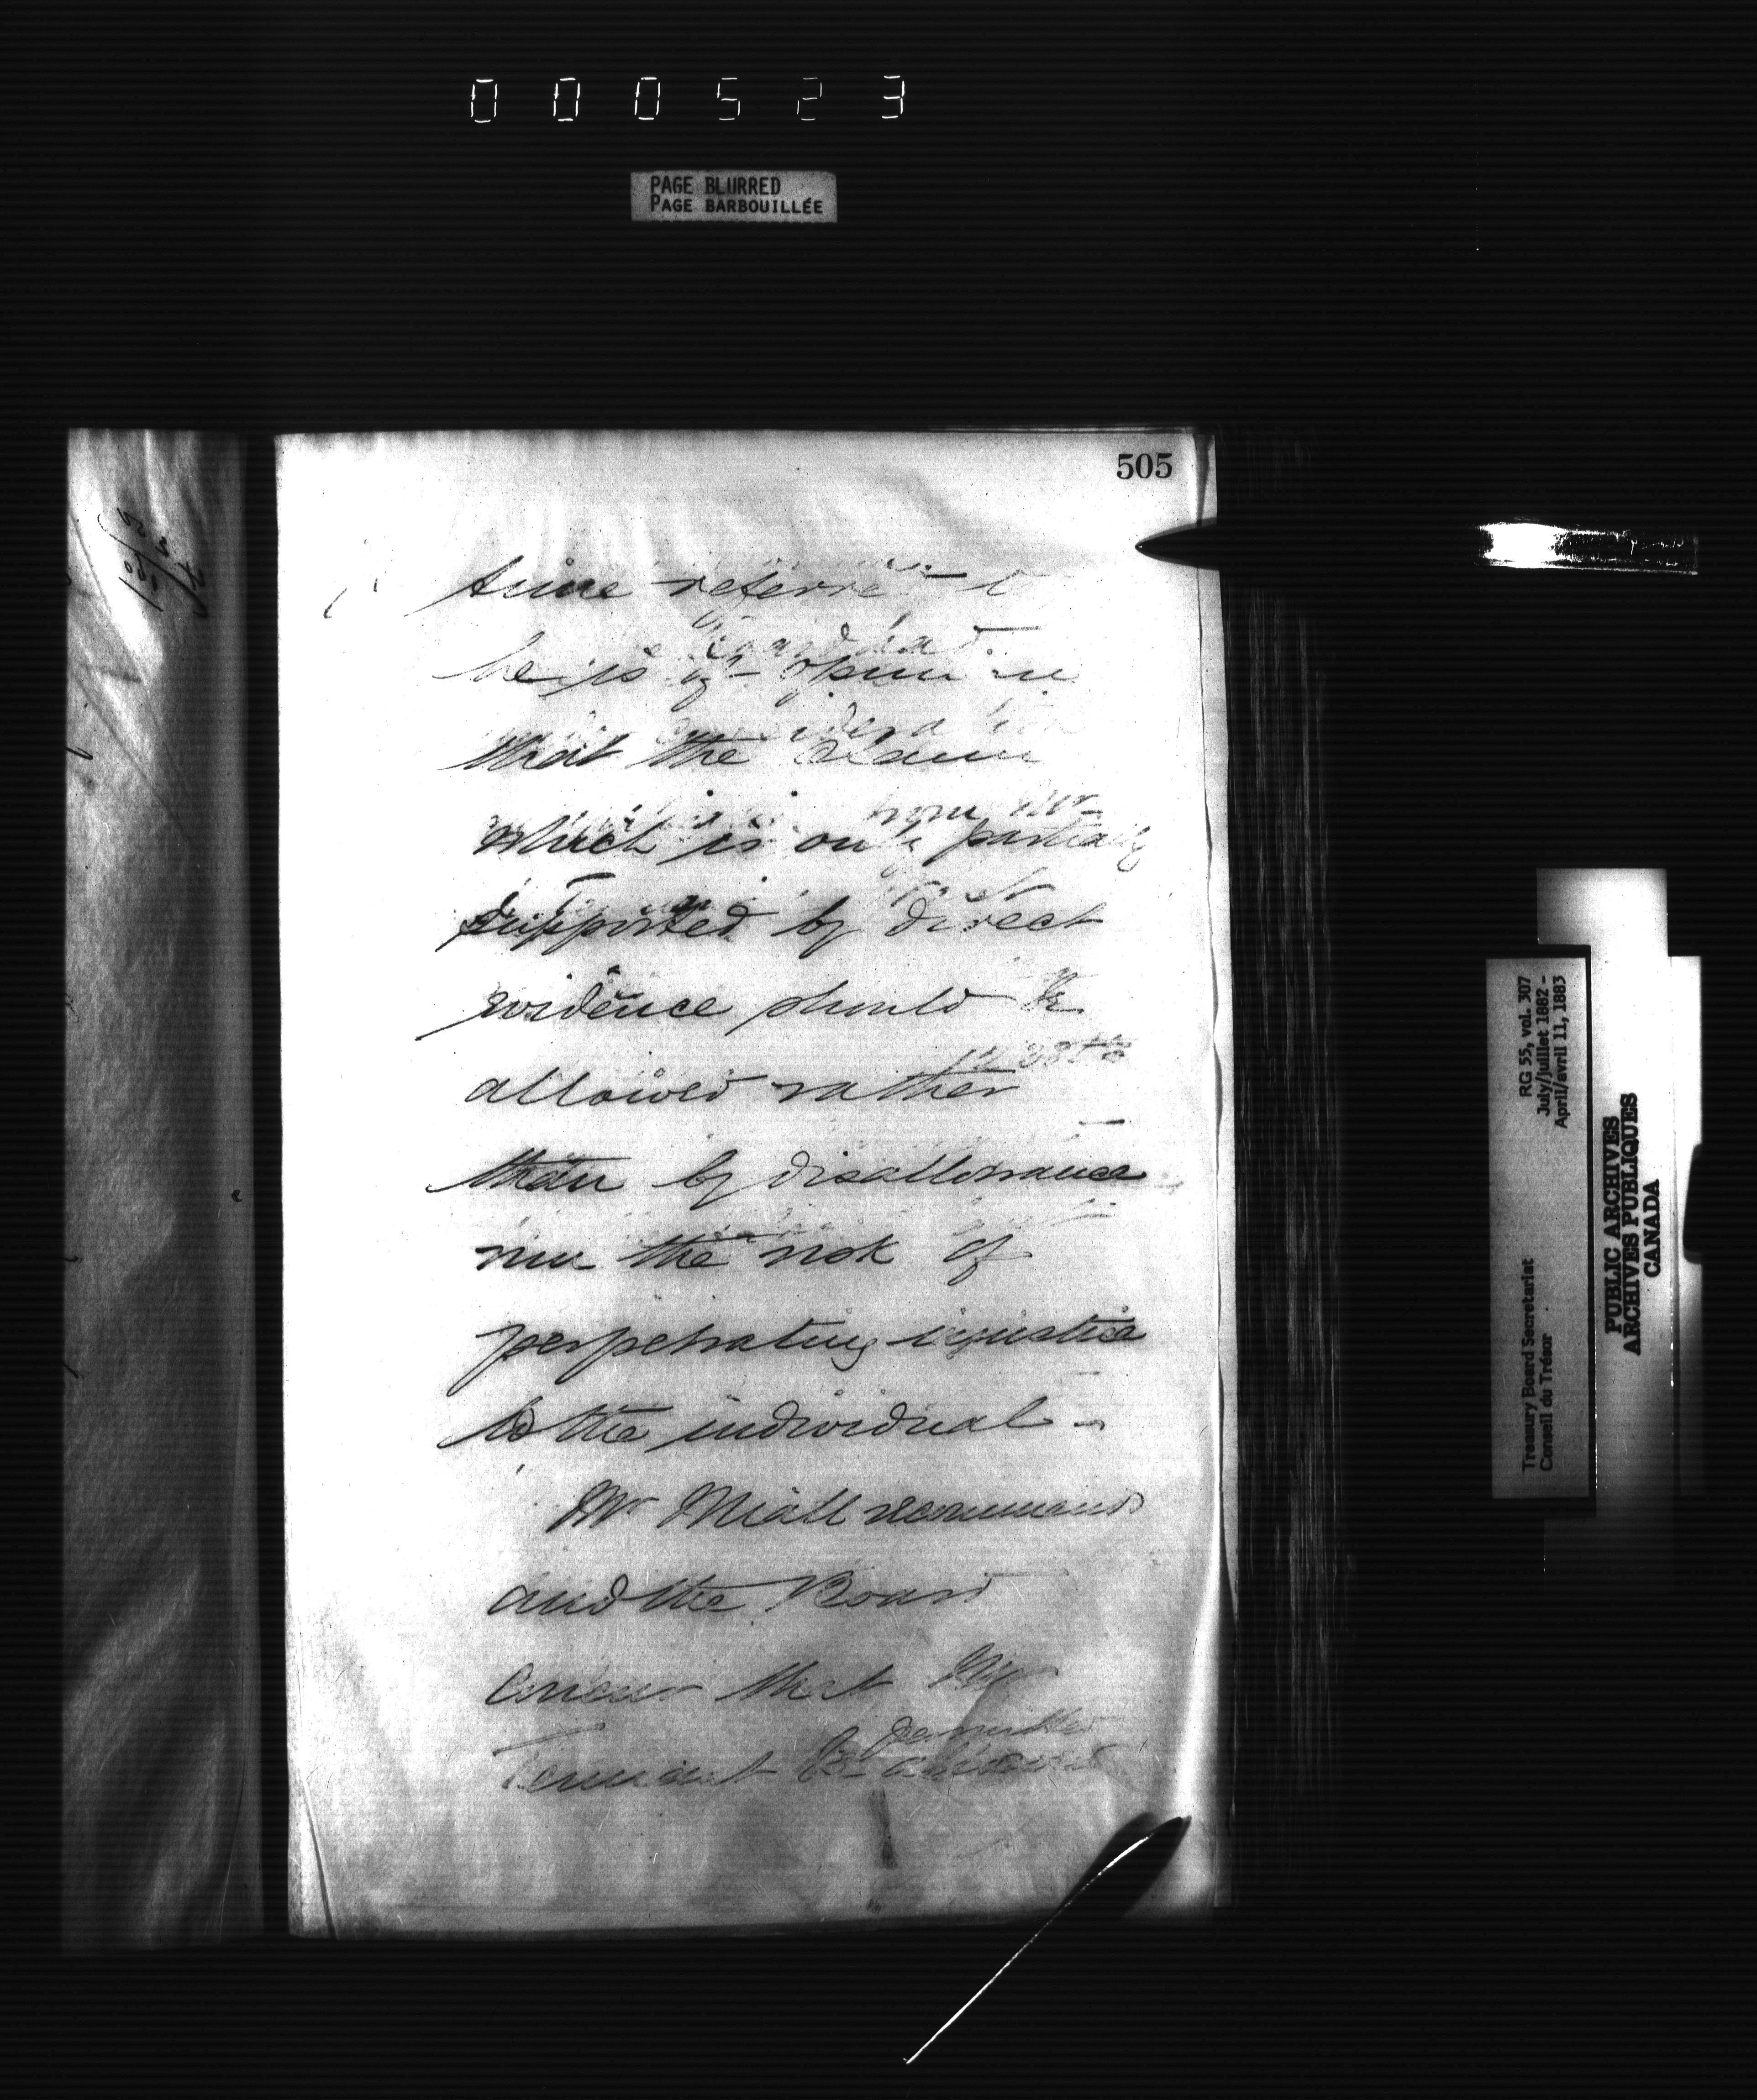 000523
PAGE BLURRED
PAGE BARBOUILLÉE
505
time referred to
he is of opinion
that the claim
which is only partially
supported by direct
evidence should be
allowed rather
than by disallowance
run the risk of
perpetrating injustice
to the individual -
Mr Miall recommends
and the Board
concur that Mr
permitted
Tennant be
RG 55, vol. 307
July/juillet 1882 -
April/avril 11, 1883
Treasury Board Secretariat
Conseil du Trésor
PUBLIC ARCHIVES
ARCHIVES PUBLIQUES
CANADA